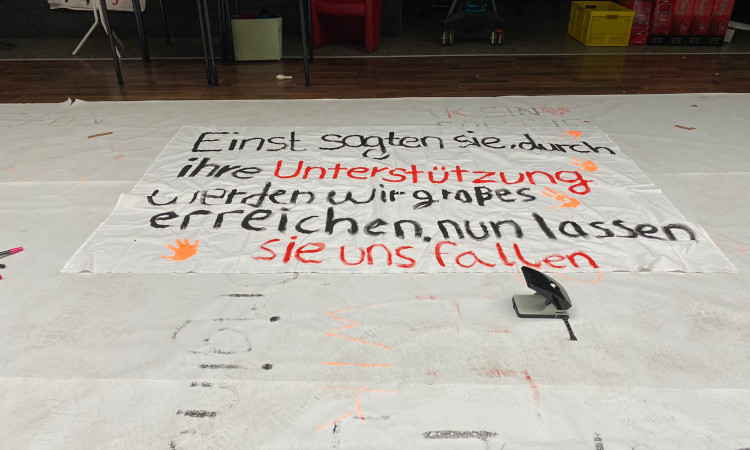 KEIN
Einst sagten sie, durch
ihre Unterstützung
werden wir großes
erreichen, nun lassen
sie uns fallen